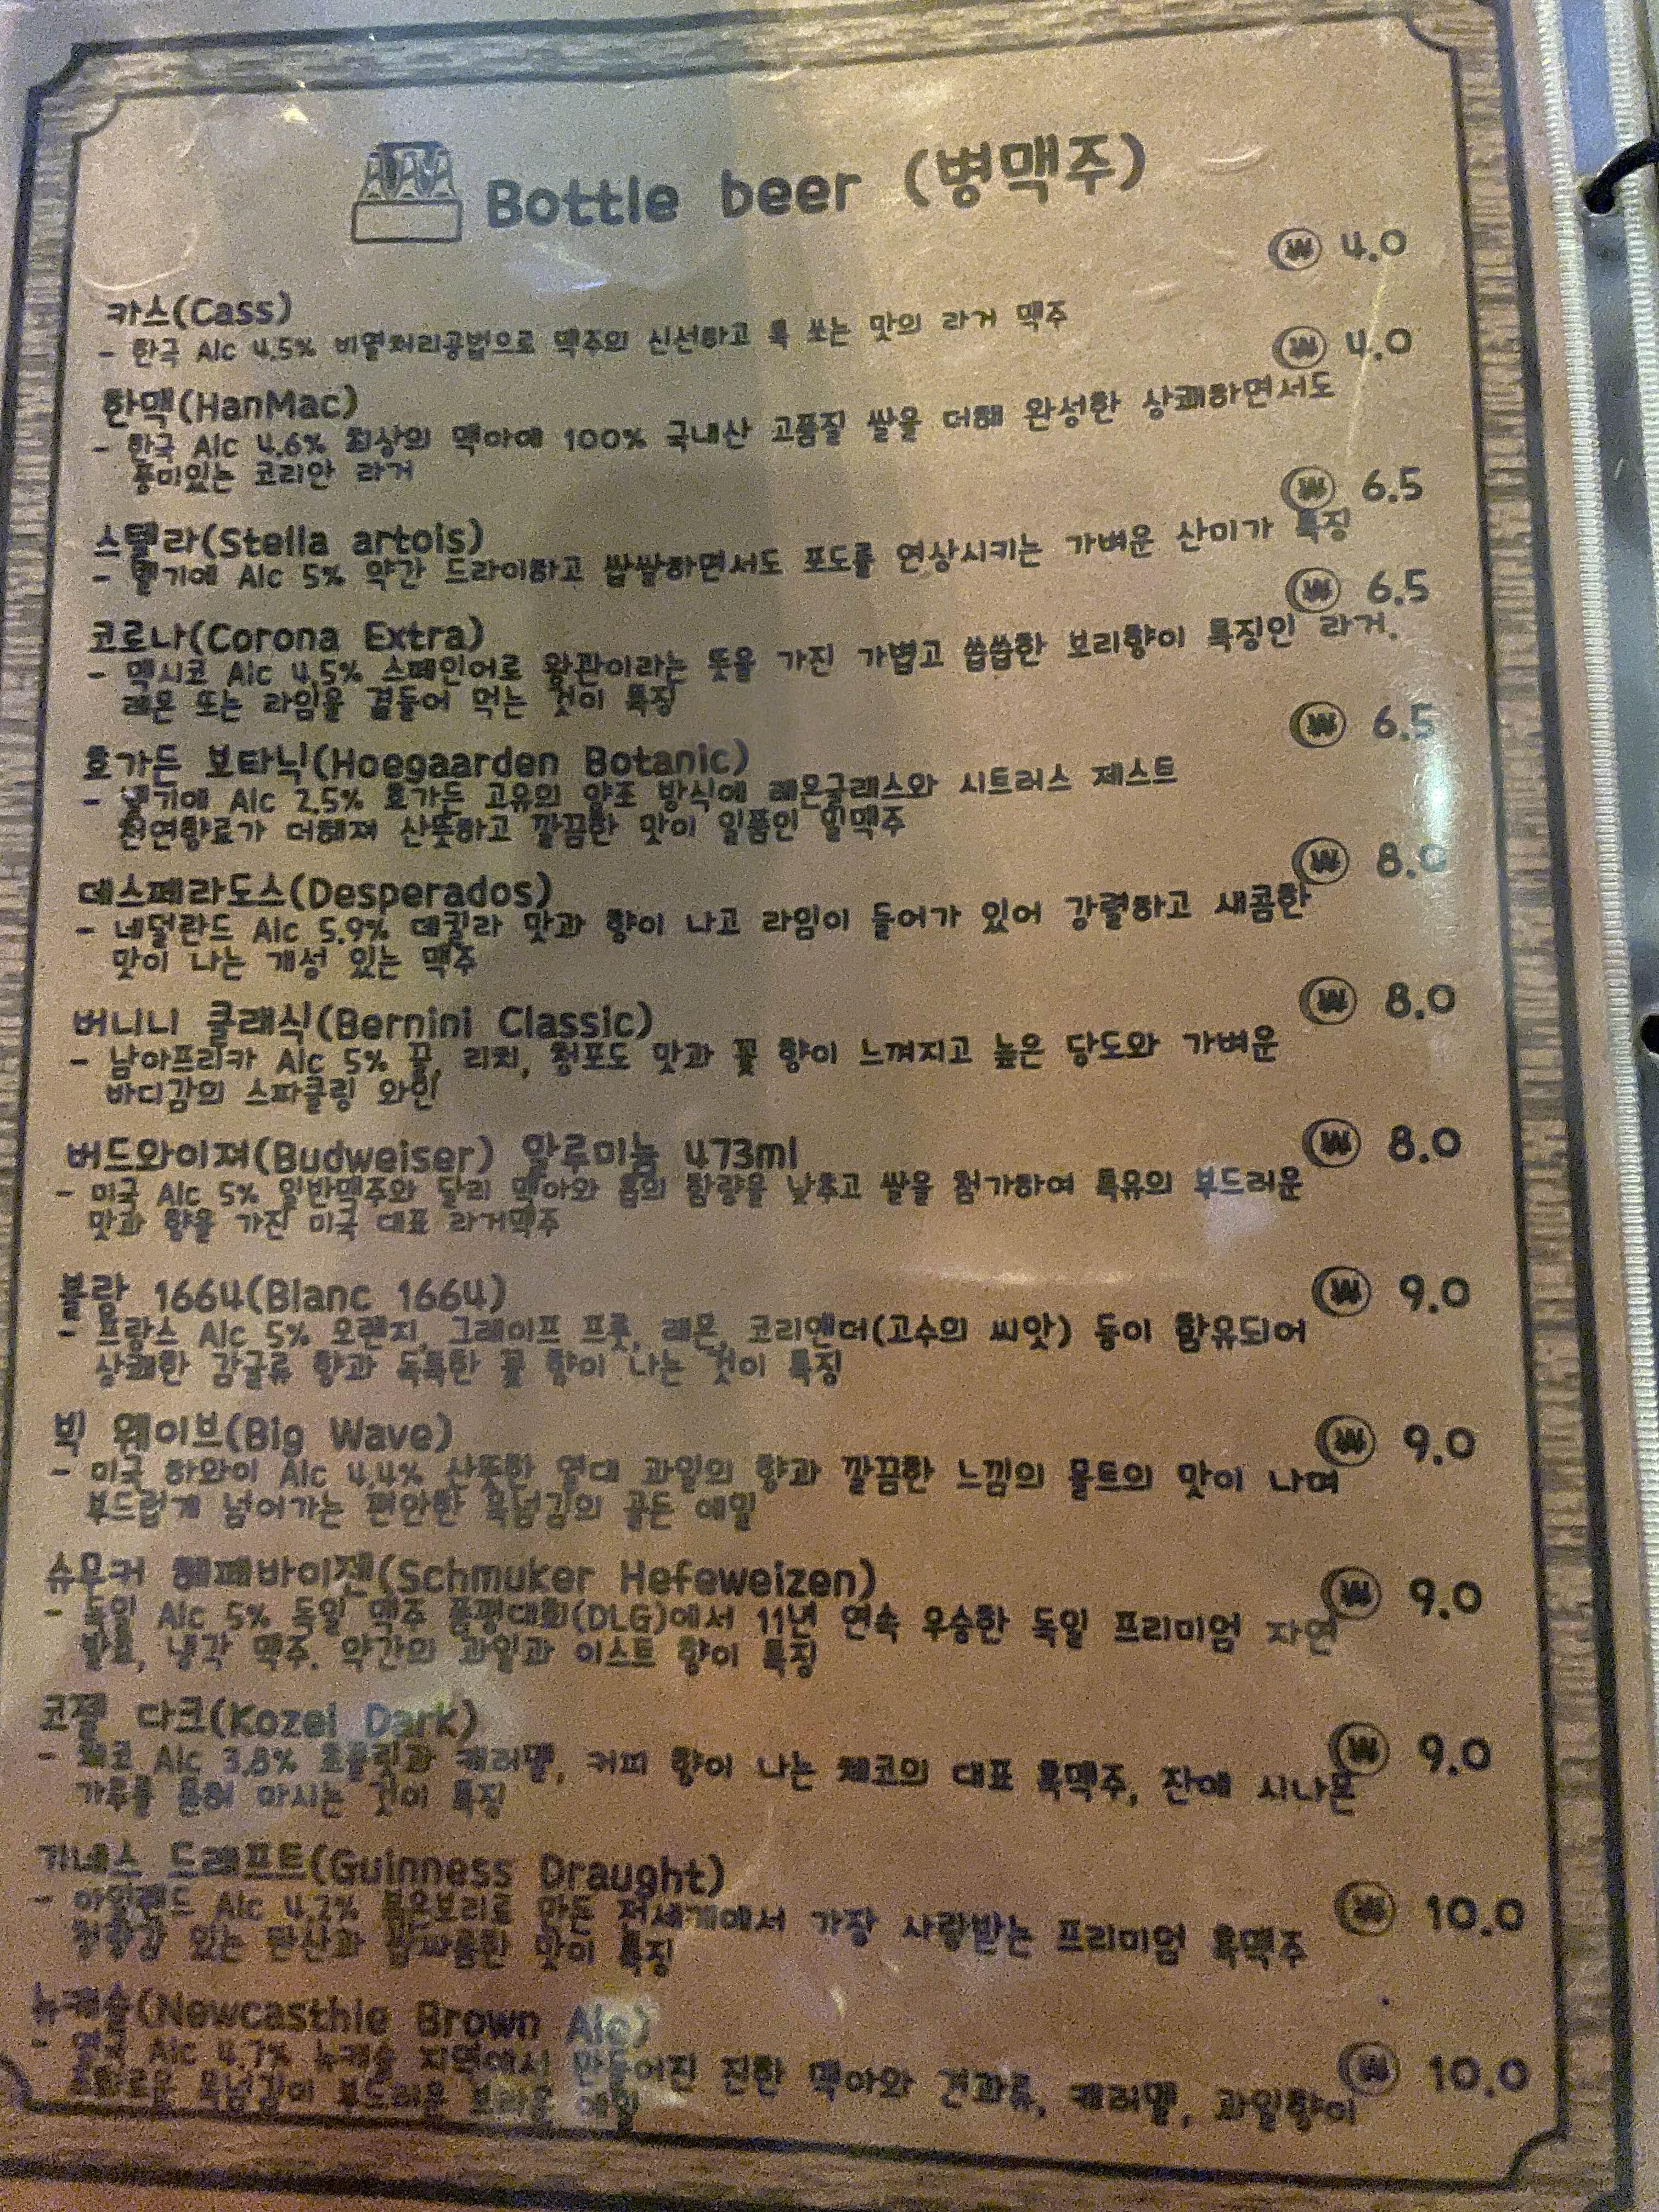 Bottle beer (병맥주)
₩ 4.0
카스(Cass)
- 한국 Alc 4.5% 비열처리공법으로 맥주의 신선하고 톡 쏘는 맛의 라거 맥주
₩ 4.0
한맥(HanMac)
- 한국 Alc 4.6% 최상의 맥아에 100% 국내산 고품질 쌀을 더해 완성한 상쾌하면서도
풍미있는 코리안 라거
₩ 6.5
스텔라(Stella artois)
- 벨기에 Alc 5% 약간 드라이하고 쌉쌀하면서도 포도를 연상시키는 가벼운 산미가 특징
₩ 6.5
코로나(Corona Extra)
- 멕시코 Alc 4.5% 스페인어로 왕관이라는 뜻을 가진 가볍고 씁씁한 보리향이 특징인 라거.
레몬 또는 라임을 곁들어 먹는 것이 특징
₩ 6.5
호가든 보타닉(Hoegaarden Botanic)
- 벨기에 Alc 2.5% 호가든 고유의 양조 방식에 레몬글래스와 시트러스 제스트
천연향료가 더해져 산뜻하고 깔끔한 맛이 일품인 밀맥주
₩ 8.0
데스페라도스(Desperados)
- 네덜란드 Alc 5.9% 데킬라 맛과 향이 나고 라임이 들어가 있어 강렬하고 새콤한
맛이 나는 개성 있는 맥주
₩ 8.0
버니니 클래식(Bernini Classic)
- 남아프리카 Alc 5% 꿀, 리치, 청포도 맛과 꽃 향이 느껴지고 높은 당도와 가벼운
바디감의 스파클링 와인
₩ 8.0
버드와이져(Budweiser) 알루미늄 473ml
- 미국 Alc 5% 일반맥주와 달리 맥아와 홉의 함량을 낮추고 쌀을 첨가하여 특유의 부드러운
맛과 향을 가진 미국 대표 라거맥주
₩ 9.0
블랑 1664(Blanc 1664)
- 프랑스 Alc 5% 오렌지, 그레이프 프룻, 레몬, 코리앤더(고수의 씨앗) 등이 함유되어
상쾌한 감귤류 향과 독특한 꽃 향이 나는 것이 특징
₩ 9.0
빅 웨이브(Big Wave)
- 미국 하와이 Alc 4.4% 산뜻한 열대 과일의 향과 깔끔한 느낌의 몰트의 맛이 나며
부드럽게 넘어가는 편안한 목넘김의 골든 에일
₩ 9.0
슈무커 헤페바이젠(Schmuker Hefeweizen)
- 독일 Alc 5% 독일 맥주 품평대회(DLG)에서 11년 연속 우승한 독일 프리미엄 자연
발효, 냉각 맥주. 약간의 과일과 이스트 향이 특징
₩ 9.0
코젤 다크(Kozel Dark)
- 체코 Alc 3.8% 초콜릿과 캐러멜, 커피 향이 나는 체코의 대표 흑맥주, 잔에 시나몬
가루를 묻혀 마시는 것이 특징
₩ 10.0
기네스 드래프트(Guinness Draught)
- 아일랜드 Alc 4.2% 볶은보리로 만든 전세계에서 가장 사랑받는 프리미엄 흑맥주
청량감 있는 탄산과 쌉싸름한 맛이 특징
₩ 10.0
뉴캐슬(Newcasthle Brown Ale)
- 영국 Alc 4.7% 뉴캐슬 지역에서 만들어진 진한 맥아와 견과류, 캐러멜, 과일향이
조화로운 목넘김이 부드러운 브라운 에일